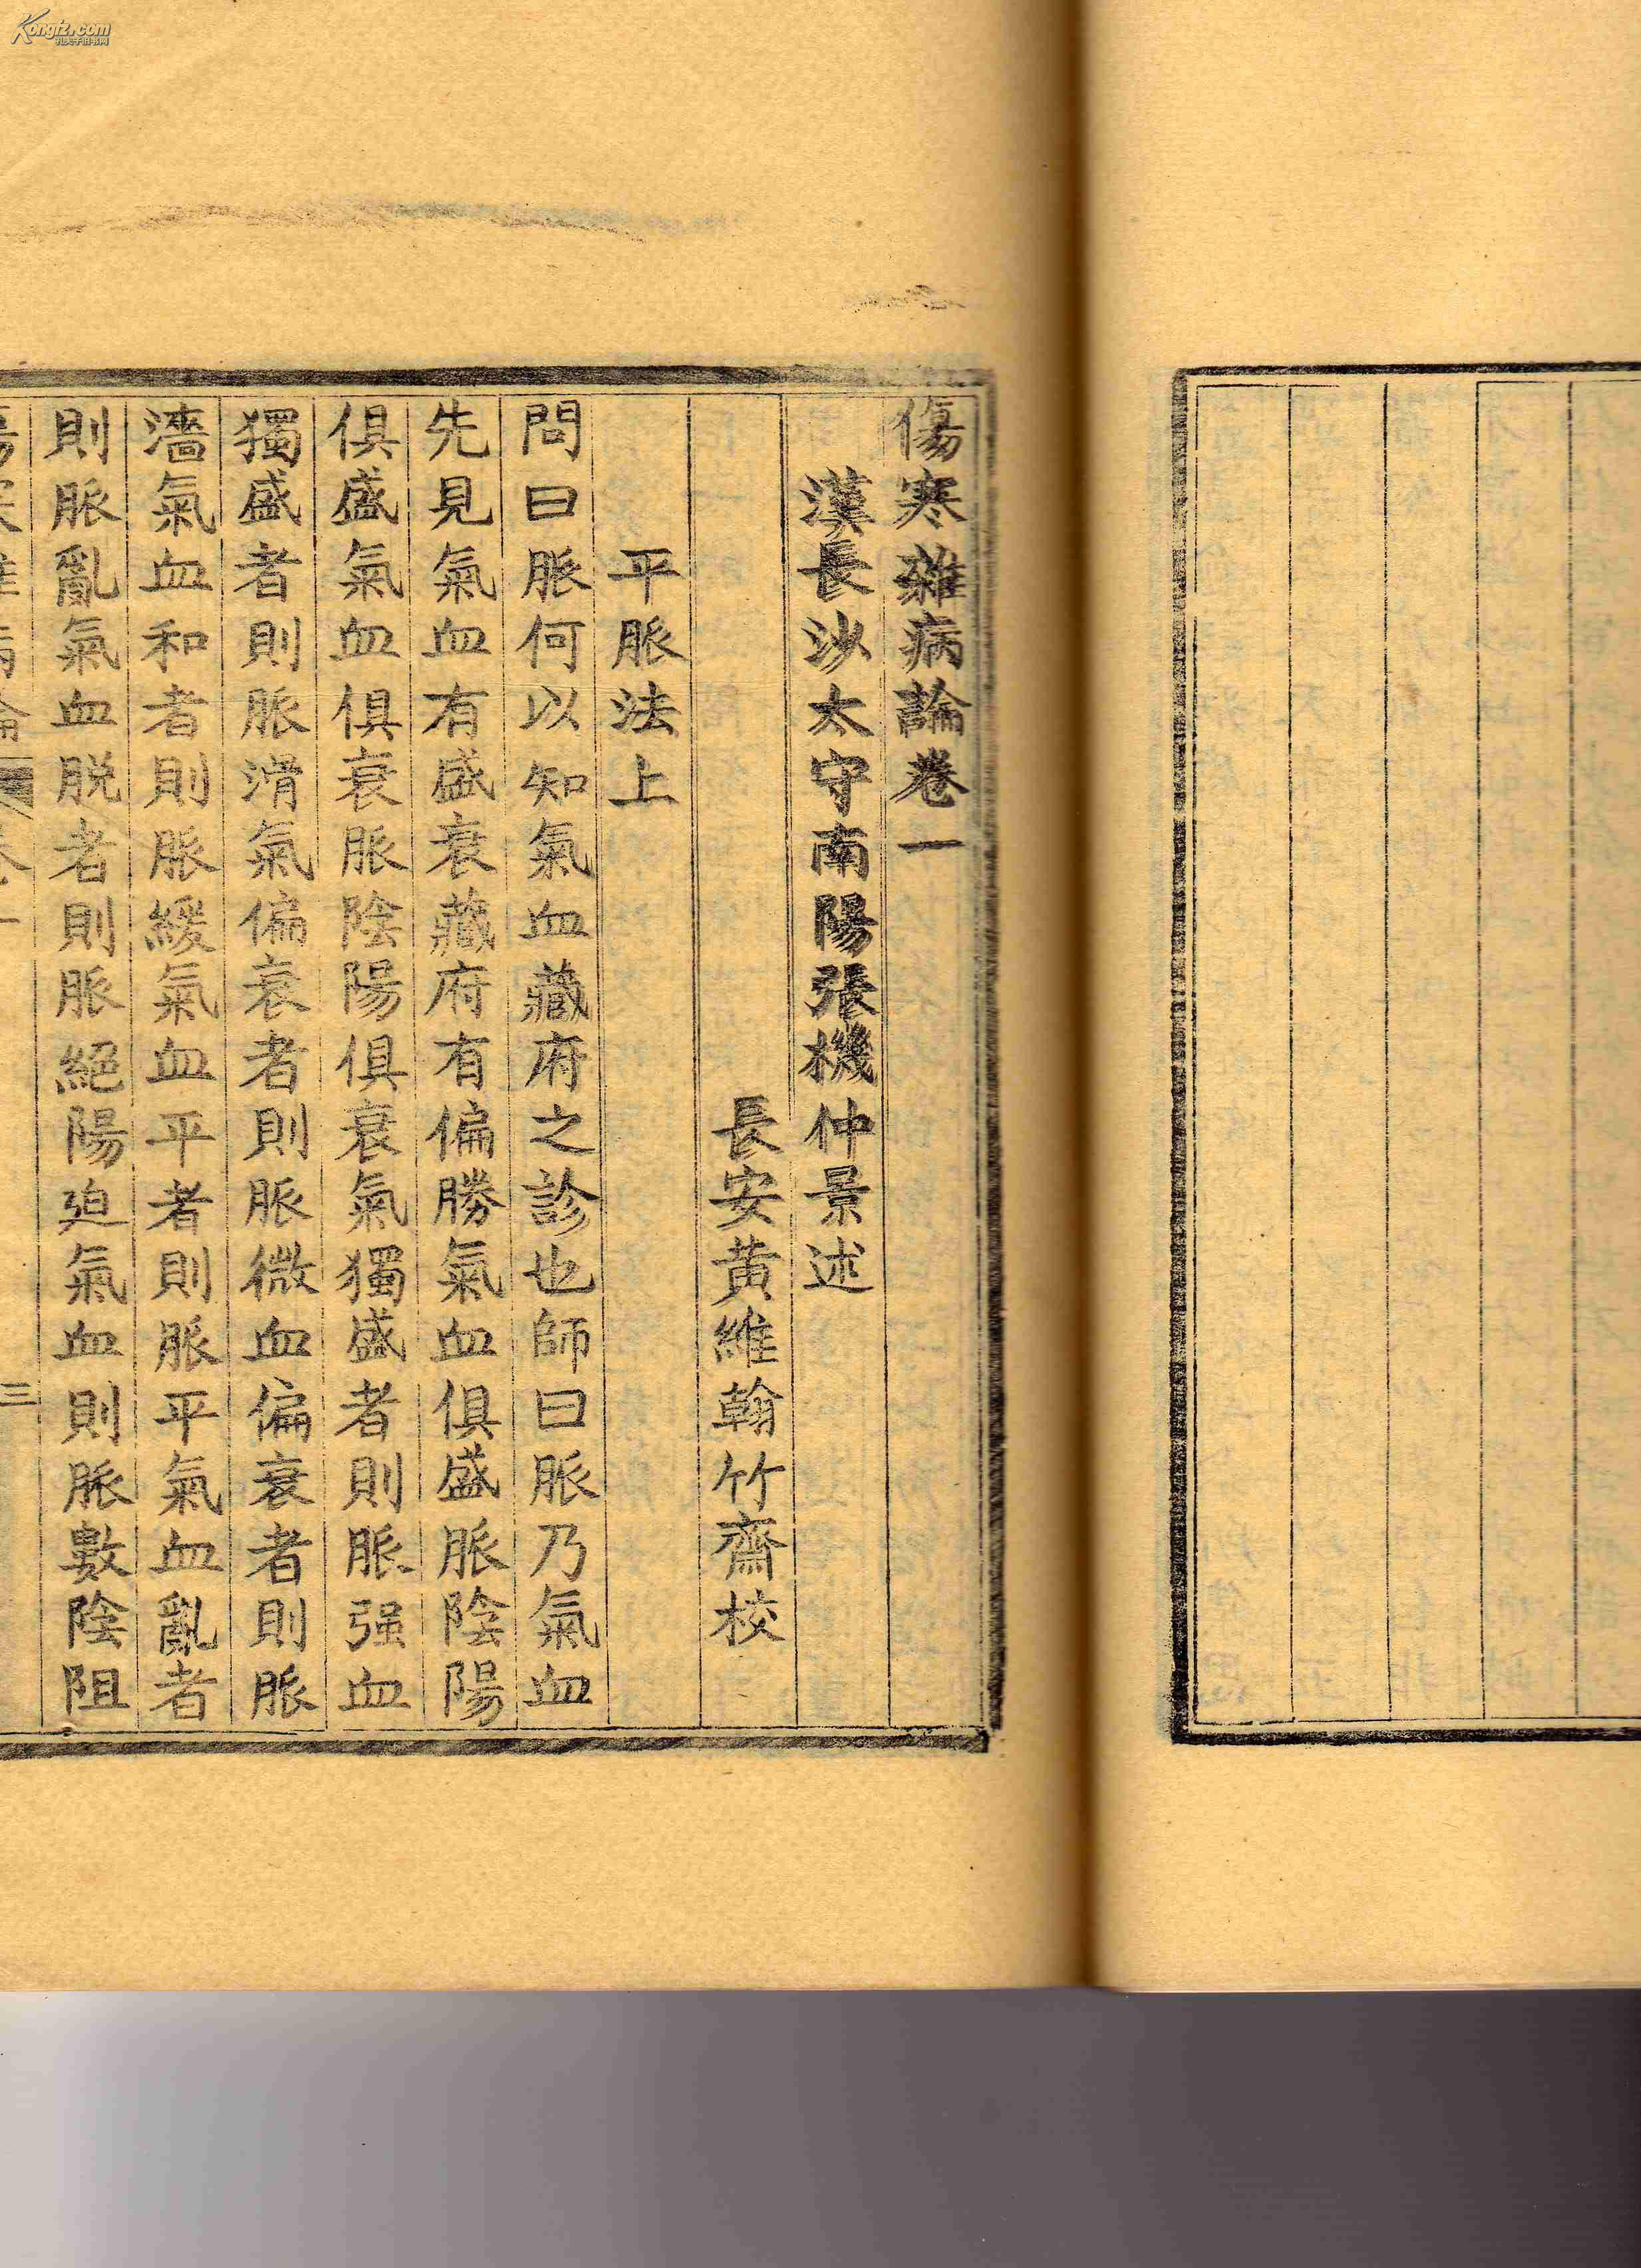 傷寒雜病論卷一
漢長沙太守南陽張機仲景述
長安黃維翰竹齋校
平脈法上
問曰脈何以知氣血藏府之診也師曰脈乃氣血
先見氣血有盛衰藏府有偏勝氣血俱盛脈陰陽
俱盛氣血俱衰脈陰陽俱衰氣獨盛者則脈强血
獨盛者則脈滑氣偏衰者則脈微血偏衰者則脈
濇氣血和者則脈緩氣血平者則脈平氣血亂者
則脈亂氣血脱者則脈絕陽迫氣血則脈數陰阻
三
Kongfz.com
孔夫子旧书网